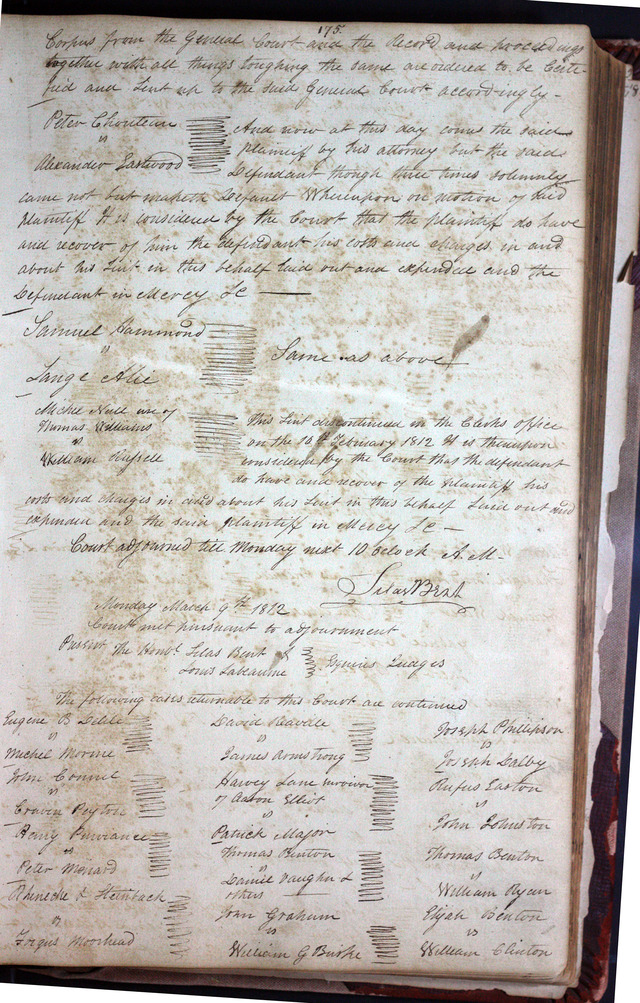 175.
Corpus from the General Court and the Record and proceedings
together with all things toughing the same are ordered to be Certi-
fied and Sent up to the said General Court accordingly -
Peter Chouteau
vs
Alexander Eastwood
And now at this day comes the said
plaintiff by his attorney but the said
Defendant though three times solemnly
came not but maketh Default Whereupon on motion of said
plaintiff It is considered by the Court that the plaintiff do have
and recover of him the defendant his costs and charges in and
about his Suit in this behalf laid out and expended and the
Defendant in Mercy &c
Samuel Hammond
vs
Lange Alie
Same as above
Michel Noill use of
Thomas Williams
vs
William Russell
This Suit discontinued in the Clerks office
on the 10th February 1812 It is thereupon
considered by the Court that the defendant
do have and recover of the plaintiff his
costs and charges in and about his Suit in this behalf Laid out and
expended and the said plaintiff in Mercy &c -
Court adjourned till Monday next 10 oclock A.M-
Silas Bent
Monday March 9th 1812
Court met pursuant to adjournment
Present The Honbl Silas Bent &
Louis Labeaume
Esquires Judges
The following cases returnable to this Court are continued
Eugene B
vs
Michel Morine
John Connel
vs
Craven Peyton
Henry Purviance
vs
Peter Menard
Rhinecke & Steinback
vs
Fergus Moorhead
David
vs
James Armstrong
Harvey Lane survivor
of Aaron Elliot
vs
Patrick Major
Thomas Benton
vs
Daniel Vaughn &
others
John Graham
vs
William G Burke
Joseph Philipson
vs
Josiah Dalby
Rufus Easton
vs
John Johnston
Thomas Benton
vs
William Ryan
Elijah Benton
vs
William Clinton